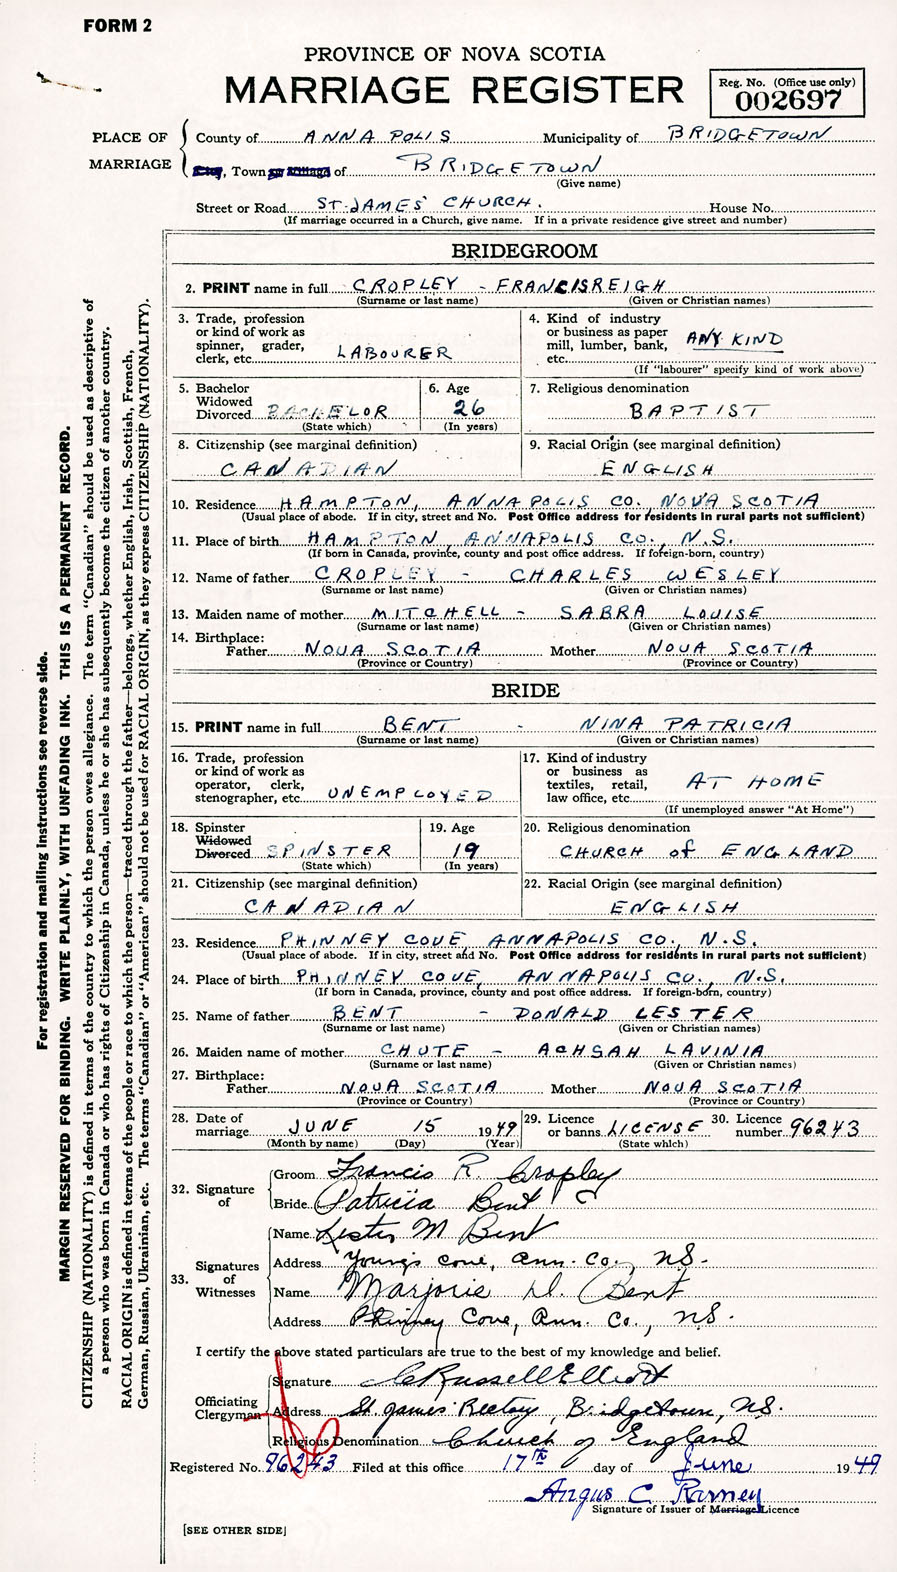 FORM 2
PROVINCE OF NOVA SCOTIA
MARRIAGE REGISTER
Reg. No. (Office use only)
002697
PLACE OF MARRIAGE
County of ANNAPOLIS Municipality of BRIDGETOWN
City, Town or Village of BRIDGETOWN
(Give name)
Street or Road ST. JAMES' CHURCH. House No.
(If marriage occurred in a Church, give name. If in a private residence give street and number)
BRIDEGROOM
2. PRINT name in full CROPLEY - FRANCIS REIGH
(Surname or last name) (Given or Christian names)
3. Trade, profession
or kind of work as
spinner, grader,
clerk, etc. LABOURER
4. Kind of industry
or business as paper
mill, lumber, bank,
etc. ANY KIND
(If "labourer" specify kind of work above)
5. Bachelor
Widowed
Divorced BACHELOR
(State which)
6. Age
26
(In years)
7. Religious denomination
BAPTIST
8. Citizenship (see marginal definition)
CANADIAN
9. Racial Origin (see marginal definition)
ENGLISH
10. Residence HAMPTON, ANNAPOLIS CO. NOVA SCOTIA
(Usual place of abode. If in city, street and No. Post Office address for residents in rural parts not sufficient)
11. Place of birth HAMPTON ANNAPOLIS CO., N.S.
(If born in Canada, province, county and post office address. If foreign-born, country)
12. Name of father CROPLEY - CHARLES WESLEY
(Surname or last name) (Given or Christian names)
13. Maiden name of mother MITCHELL - SABRA LOUISE
(Surname or last name) (Given or Christian names)
14. Birthplace:
Father NOVA SCOTIA Mother NOVA SCOTIA
(Province or Country) (Province or Country)
BRIDE
15. PRINT name in full BENT - NINA PATRICIA
(Surname or last name) (Given or Christian names)
16. Trade, profession
or kind of work as
operator, clerk,
stenographer, etc. UNEMPLOYED
17. Kind of industry
or business as
textiles, retail,
law office, etc. AT HOME
(If unemployed answer "At Home")
18. Spinster
Widowed
Divorced SPINSTER
(State which)
19. Age
19
(In years)
20. Religious denomination
CHURCH of ENGLAND
21. Citizenship (see marginal definition)
CANADIAN
22. Racial Origin (see marginal definition)
ENGLISH
23. Residence PHINNEY COVE, ANNAPOLIS CO., N.S.
(Usual place of abode. If in city, street and No. Post Office address for residents in rural parts not sufficient)
24. Place of birth PHINNEY COVE, ANNAPOLIS CO., N.S.
(If born in Canada, province, county and post office address. If foreign-born, country)
25. Name of father BENT - DONALD LESTER
(Surname or last name) (Given or Christian names)
26. Maiden name of mother CHUTE - ACHSAH LAVINIA
(Surname or last name) (Given or Christian names)
27. Birthplace:
Father NOVA SCOTIA Mother NOVA SCOTIA
(Province or Country) (Province or Country)
28. Date of
marriage JUNE 15 1949
(Month by name) (Day) (Year)
29. Licence
or banns LICENSE
(State which)
30. Licence
number 96243
32. Signature of
Groom Francis R. Cropley
Bride Patricia Bent
33. Signatures of Witnesses
Name Lester M Bent
Address Youngs Cove, Ann. Co., NS.
Name Marjorie D. Bent
Address Phinney Cove, Ann. Co., NS.
I certify the above stated particulars are true to the best of my knowledge and belief.
Officiating Clergyman
Signature C Russell Elliott
Address St. James' Rectory, Bridgetown, NS.
Religious Denomination Church of England
Registered No. 96243 Filed at this office 17th day of June 1949
Angus C. Ramey
Signature of Issuer of Marriage Licence
[SEE OTHER SIDE]
For registration and mailing instructions see reverse side.
MARGIN RESERVED FOR BINDING. WRITE PLAINLY, WITH UNFADING INK. THIS IS A PERMANENT RECORD.
CITIZENSHIP (NATIONALITY) is defined in terms of the country to which the person owes allegiance. The term "Canadian" should be used as descriptive of
a person who was born in Canada or who has rights of Citizenship in Canada, unless he or she has subsequently become the citizen of another country.
RACIAL ORIGIN is defined in terms of the people or race to which the person—traced through the father—belongs, whether English, Irish, Scottish, French,
German, Russian, Ukrainian, etc. The terms "Canadian" or "American" should not be used for RACIAL ORIGIN, as they express CITIZENSHIP (NATIONALITY).